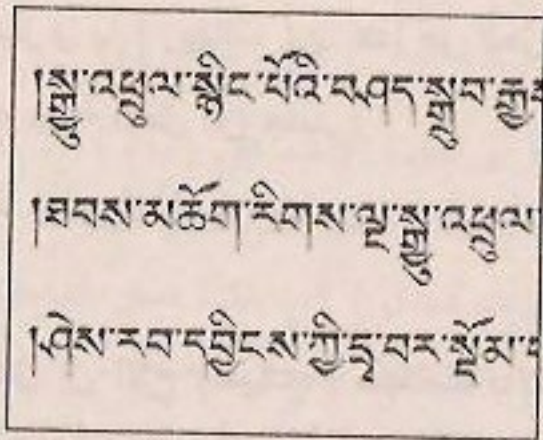 །སྒྱུ་འཕྲུལ་སྙིང་པོའི་བཤད་སྒྲུབ་
།ཐབས་མཆོག་རིགས་ལྔ་སྒྱུ་འཕྲུལ་
།ཤེས་རབ་དབྱིངས་ཀྱི་དྲྭ་བར་སྡོམ་